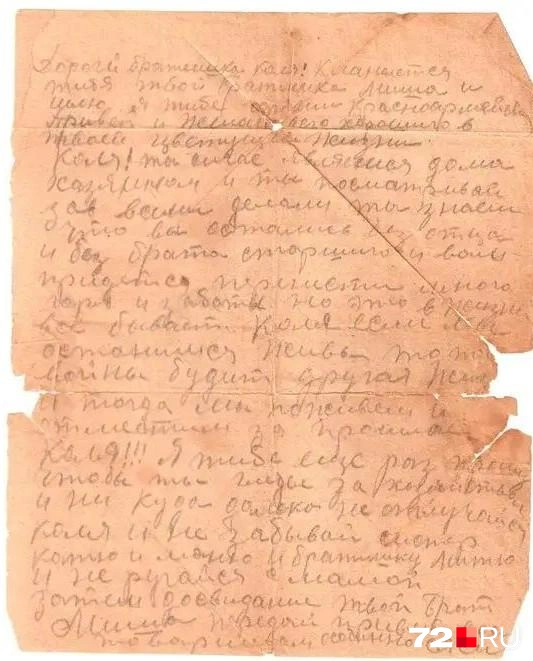 Дорогой братишка Коля! Кланяется
тибя твой братишка Миша и
шлю я тибе Красноармейский
привет и желаю всего хорошего в
твоей цветущей жизни.
Коля! ты сичас являешся дома
хазяином и ты посматривай
за всеми делами ты знаеш
что вы остались без отца
и без брата старшего и вам
придется перенести много
горя и заботы но это в жизни
все бывает. Коля если мы
останимся живы то после
войны будит другая жизнь
и тогда мы поживем и
отместим за прошлое
Коля!!! Я тибе еще раз
чтобы ты за хозяйством
и ни куда далеко не отлучайся
Коля и не забывай сестер
Катю и Маню и братишку Митю
и не ругайся с мамой
затем досвидание твой брат
Миша передай привет
товарищам
72.RU